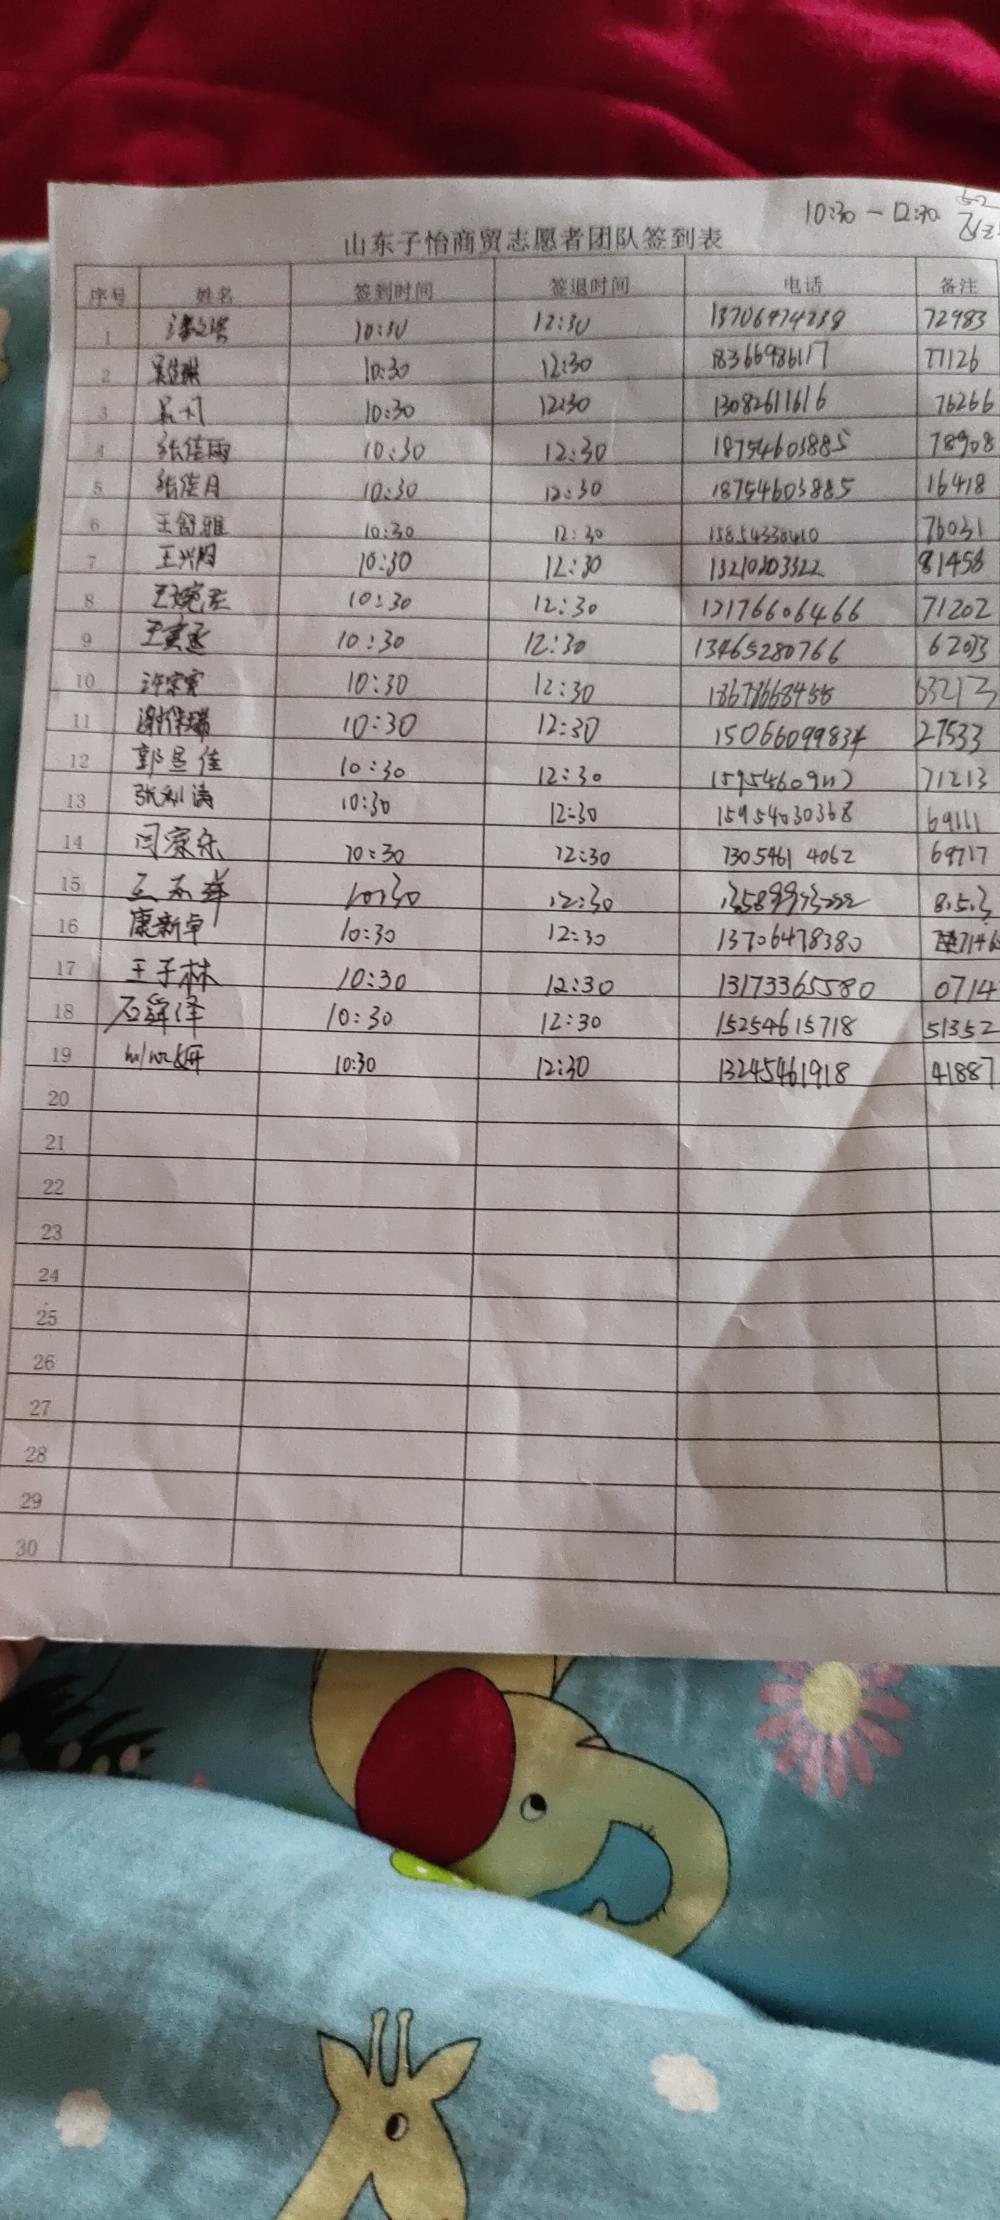 10:30-12:30
山东子怡商贸志愿者团队签到表
序号 姓名 签到时间 签退时间 电话 备注
1 10:30 12:30 13706474239 72983
2 10:30 12:30 18366986117 77126
3 10:30 12:30 13082611616 76266
4 张佳雨 10:30 12:30 18754603885 78908
5 张佳月 10:30 12:30 18754603885 16418
6 王舒雅 10:30 12:30 15854338410 76031
7 10:30 12:30 13210303322 81458
8 10:30 12:30 12176606466 71202
9 10:30 12:30 13465280766
10 10:30 12:30 63213
11 10:30 12:30 27533
12 郭昱佳 10:30 12:30 71213
13 张利涛 10:30 12:30 15954030368 69111
14 闫家乐 10:30 12:30 13054614062 69717
15 10:30 12:30
16 康新卓 10:30 12:30 13706478380
17 王子林 10:30 12:30 13173365580 0714
18 石舜泽 10:30 12:30 15254615718 51352
19 10:30 12:30 13245461918 41887
20
21
22
23
24
25
26
27
28
29
30